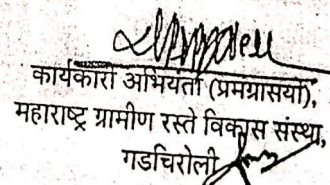 कार्यकारी अभियंता (प्रमग्रासयो),
महाराष्ट्र ग्रामीण रस्ते विकास संस्था,
गडचिरोली